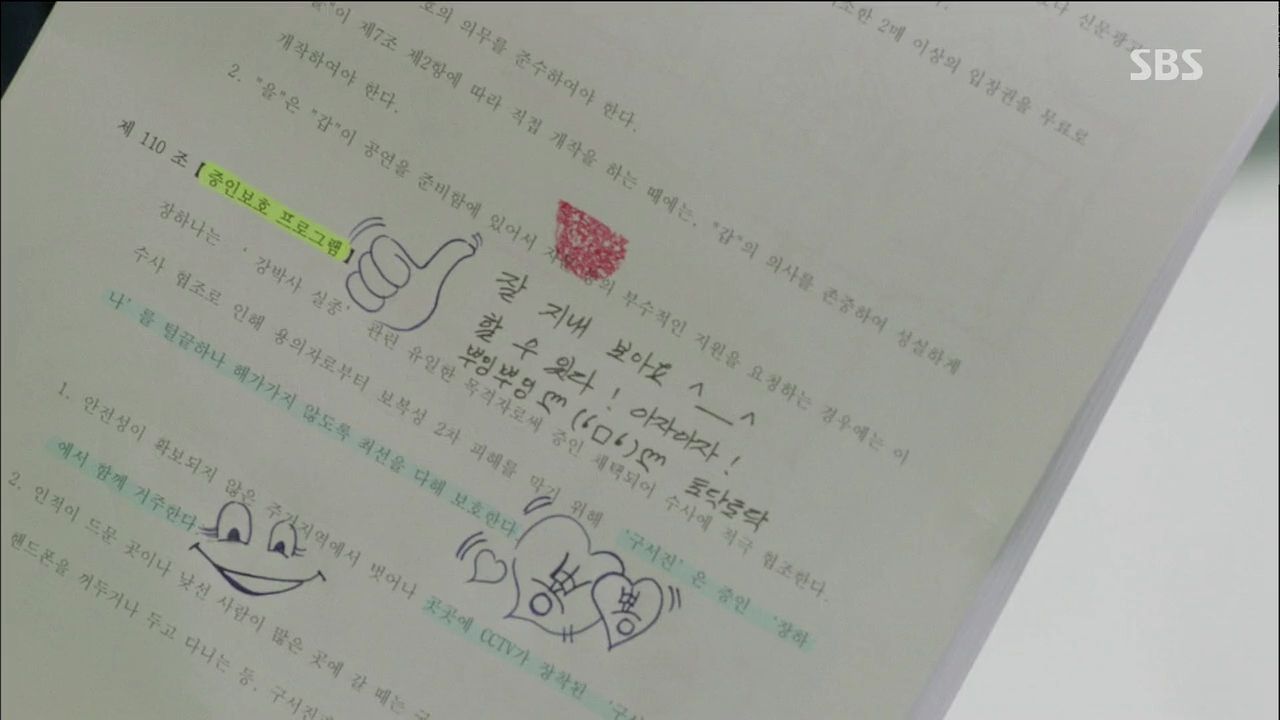 SBS
나 신문광고
소한 2매 이상의 입장권을 무료로
호의 의무를 준수하여야 한다.
"을"이 제7조 제2항에 따라 직접 개작을 하는 때에는, "갑"의 의사를 존중하여 성실하게
개작하여야 한다.
2. "을"은 "갑"이 공연을 준비함에 있어서 의 부수적인 지원을 요청하는 경우에는 이
제 110 조 【증인보호 프로그램】
장하나는 '강박사 실종' 관련 유일한 목격자로써 증인 채택되어 수사에 적극 협조한다.
수사 협조로 인해 용의자로부터 보복성 2차 피해를 막기 위해 '구서진'은 증인 '장하
나'를 털끝하나 해가가지 않도록 최선을 다해 보호한다.
1. 안전성이 확보되지 않은 주거지역에서 벗어나 곳곳에 CCTV가 장착된 '구서
에서 함께 거주한다.
2. 인적이 드문 곳이나 낯선 사람이 많은 곳에 갈 때는 구
핸드폰을 꺼두거나 두고 다니는 등, 구서진
잘 지내 보아요 ^__^
할 수 있다! 아자아자!
뿌잉뿌잉 ლ(“ㅁ“)ლ
토닥토닥
뿅
뿅